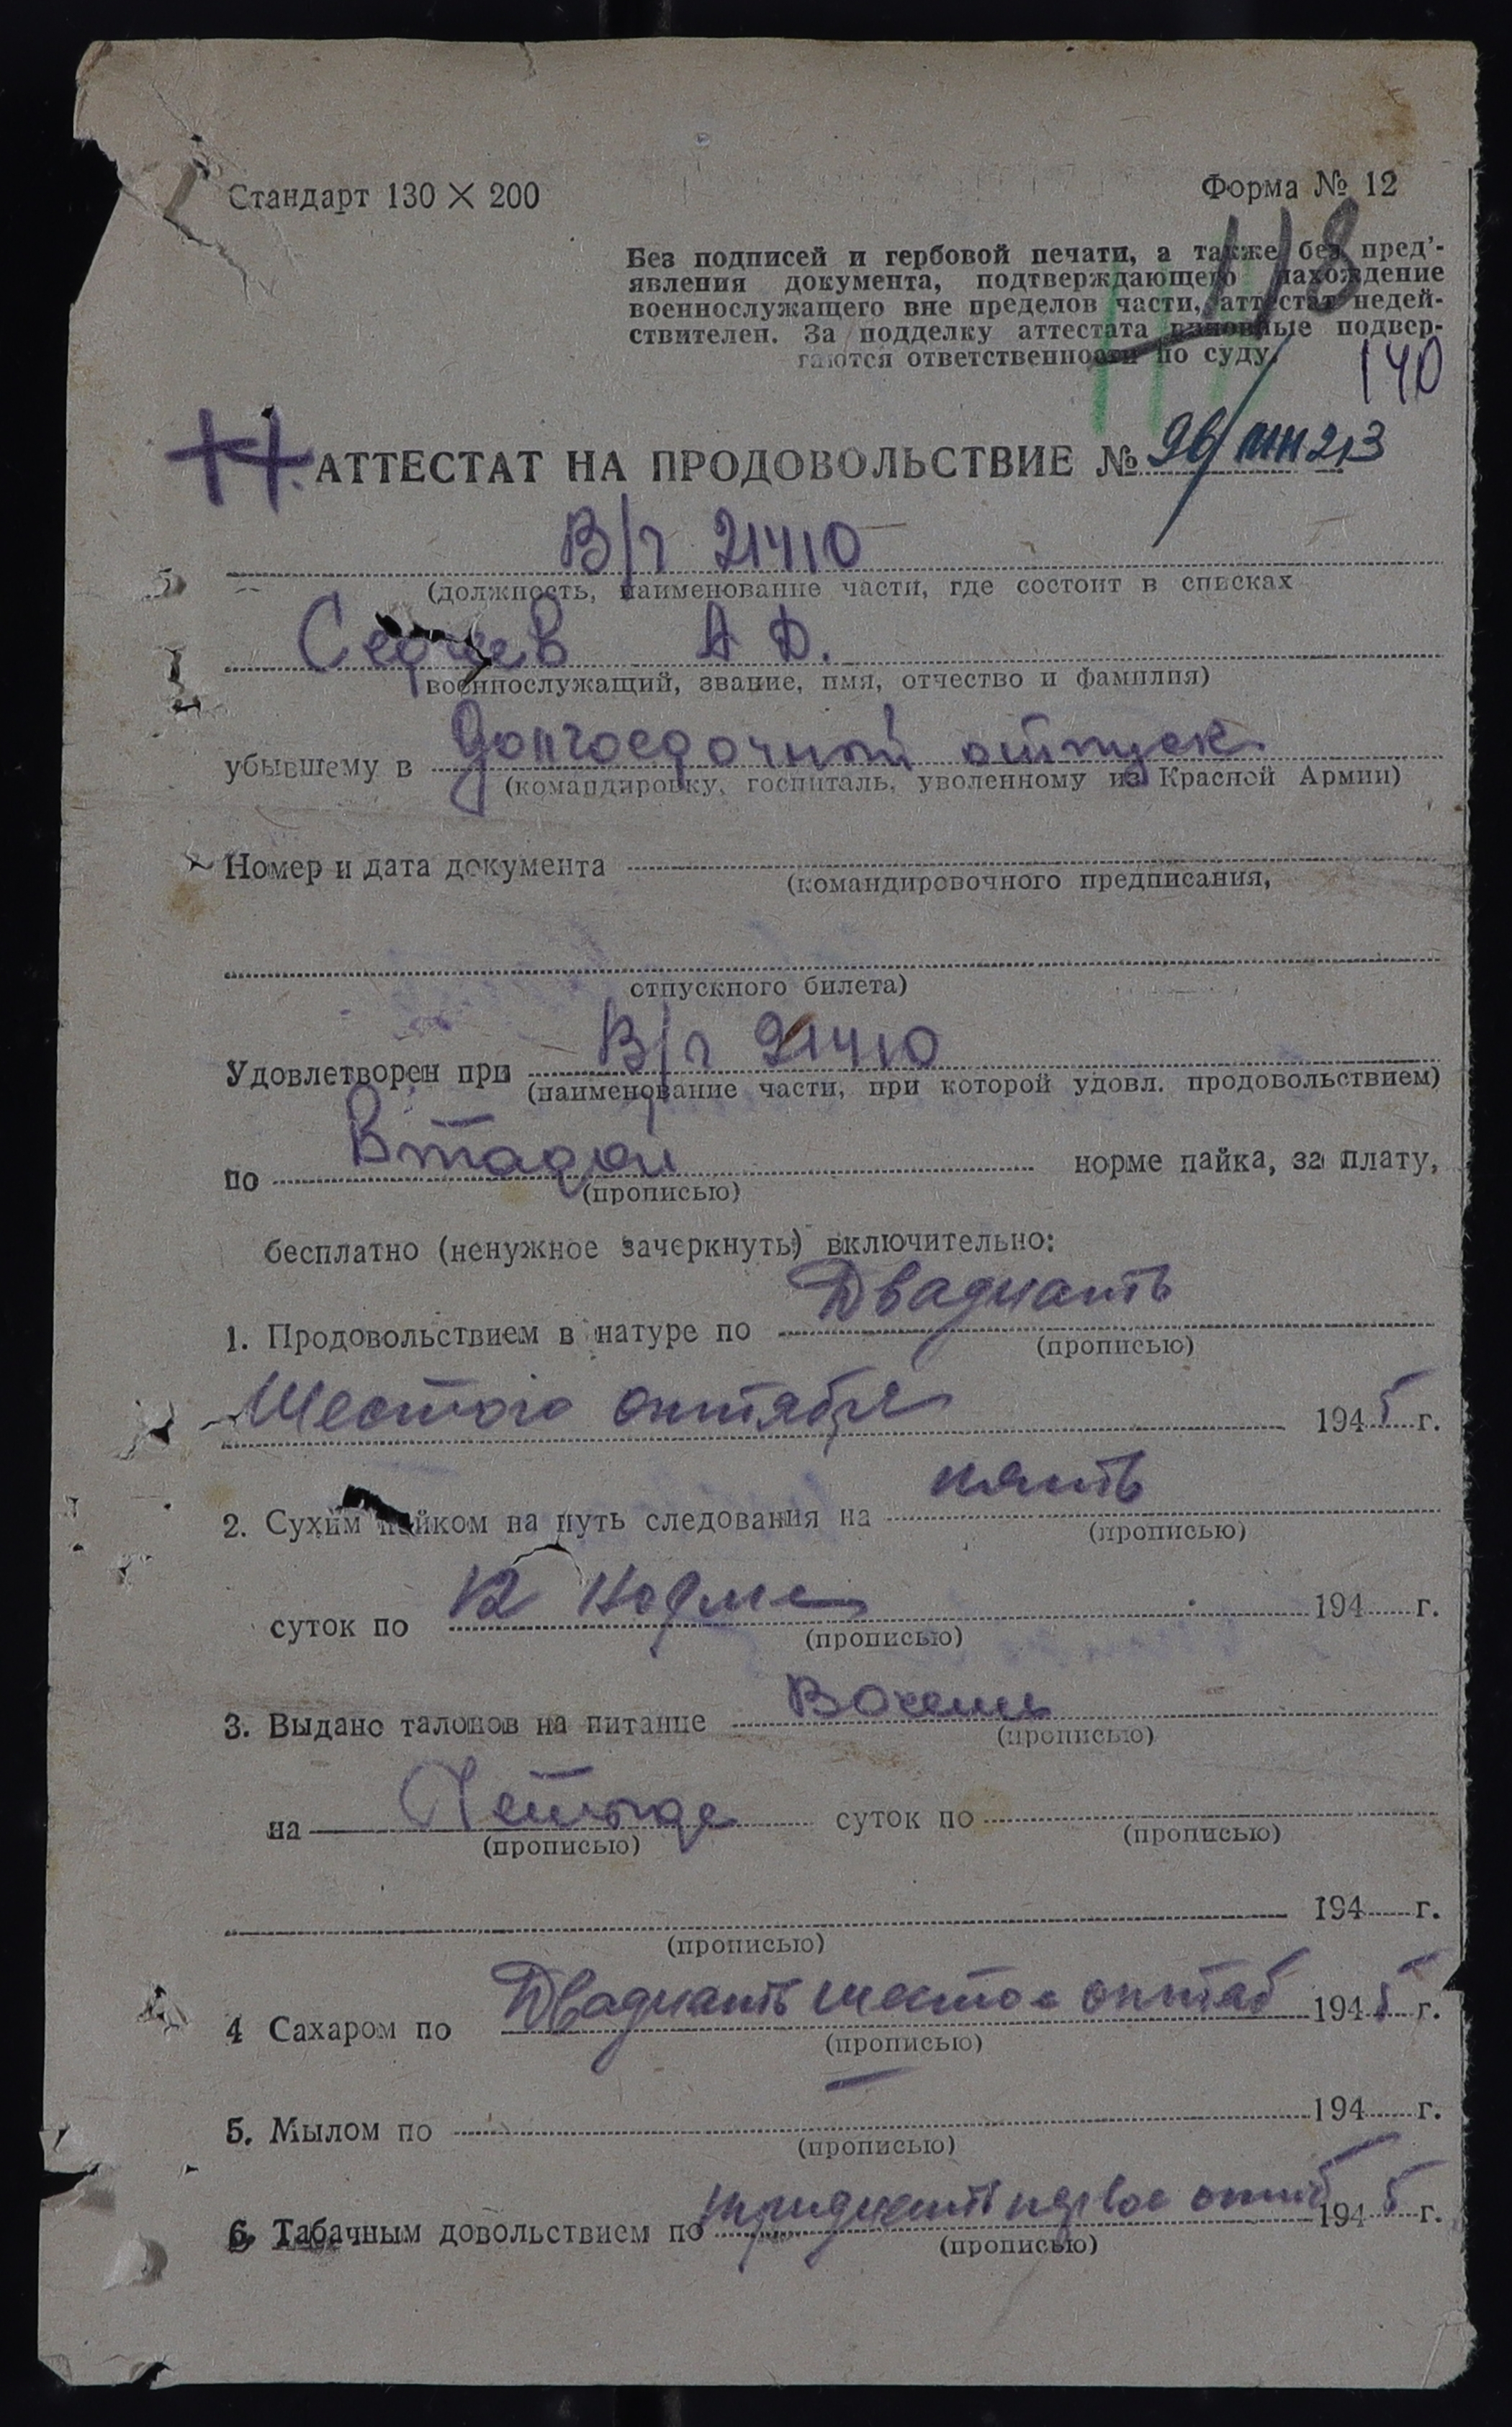 Стандарт 130 × 200
Форма № 12
118
Без подписей и гербовой печати, а также без пред'-
явления документа, подтверждающего нахождение
военнослужащего вне пределов части, аттестат недей-
ствителен. За подделку аттестата виновные подвер-
гаются ответственности по суду.
140
АТТЕСТАТ НА ПРОДОВОЛЬСТВИЕ №
В/ч 21410
(должность, наименование части, где состоит в списках
А Д.
военнослужащий, звание, имя, отчество и фамилия)
убывшему в долгосрочный отпуск
(командировку, госпиталь, уволенному из Красной Армии)
Номер и дата документа
(командировочного предписания,
отпускного билета)
Удовлетворен при В/ч 21410
(наименование части, при которой удовл. продовольствием)
по Второй норме пайка, за плату,
(прописью)
бесплатно (ненужное зачеркнуть) включительно:
1. Продовольствием в натуре по Двадцать
(прописью)
Шестого октября 1945 г.
2. Сухим пайком на путь следования на пять
(прописью)
суток по 12 норме 194 г.
(прописью)
3. Выдано талонов на питание
(прописью)
на суток по
(прописью) (прописью)
194 г.
(прописью)
4 Сахаром по Двадцать шестое октяб 1945 г.
(прописью)
5. Мылом по — 194 г.
(прописью)
6. Табачным довольствием по тридцать первое 1945 г.
(прописью)